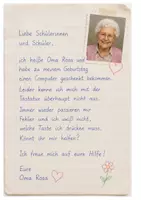 Liebe Schülerinnen
und Schüler,
ich heiße Oma Rosa und
habe zu meinem Geburtstag
einen Computer geschenkt bekommen.
Leider kenne ich mich mit der
Tastatur überhaupt nicht aus.
Immer wieder passieren mir
Fehler und ich weiß nicht,
welche Taste ich drücken muss.
Könnt ihr mir helfen?
Ich freue mich auf eure Hilfe!
Eure
Oma Rosa